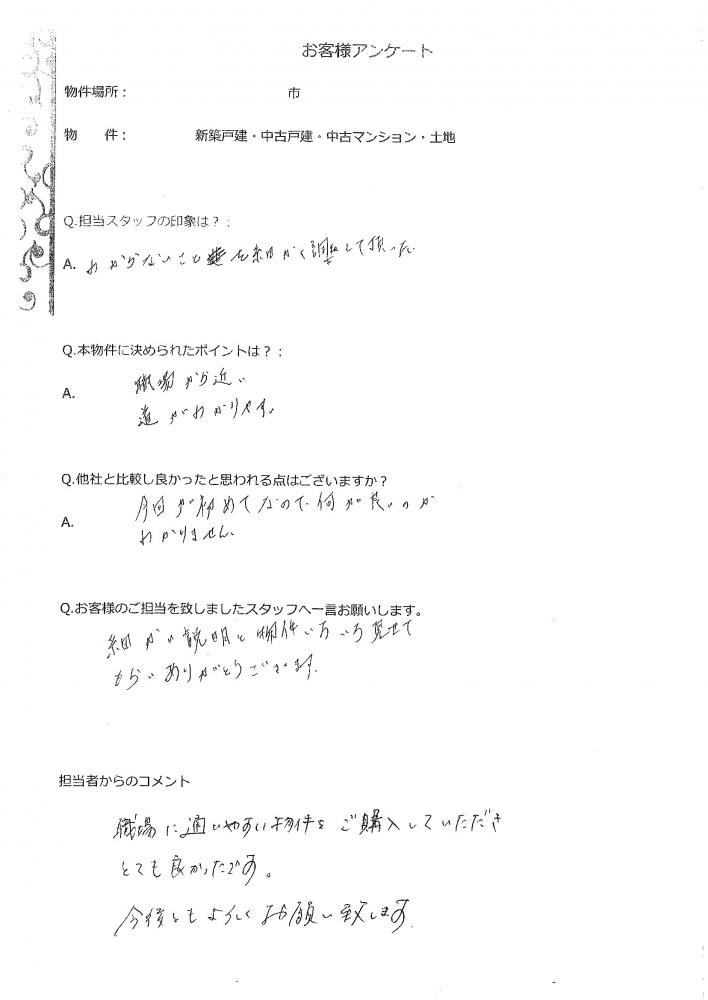 お客様アンケート
物件場所： 市
物 件： 新築戸建・中古戸建・中古マンション・土地
Q.担当スタッフの印象は？：
A. わからないことを細かく調整して頂った
Q.本物件に決められたポイントは？：
A. 職場から近い
道がわかりやすい
Q.他社と比較し良かったと思われる点はございますか？
A. 今回が初めてなので何が良いのか
わかりません。
Q.お客様のご担当を致しましたスタッフへ一言お願いします。
細かい説明と物件いろいろ見せて
もらいありがとうございます。
担当者からのコメント
職場に通いやすい物件をご購入していただき
とても良かったです。
今後ともよろしくお願い致します。